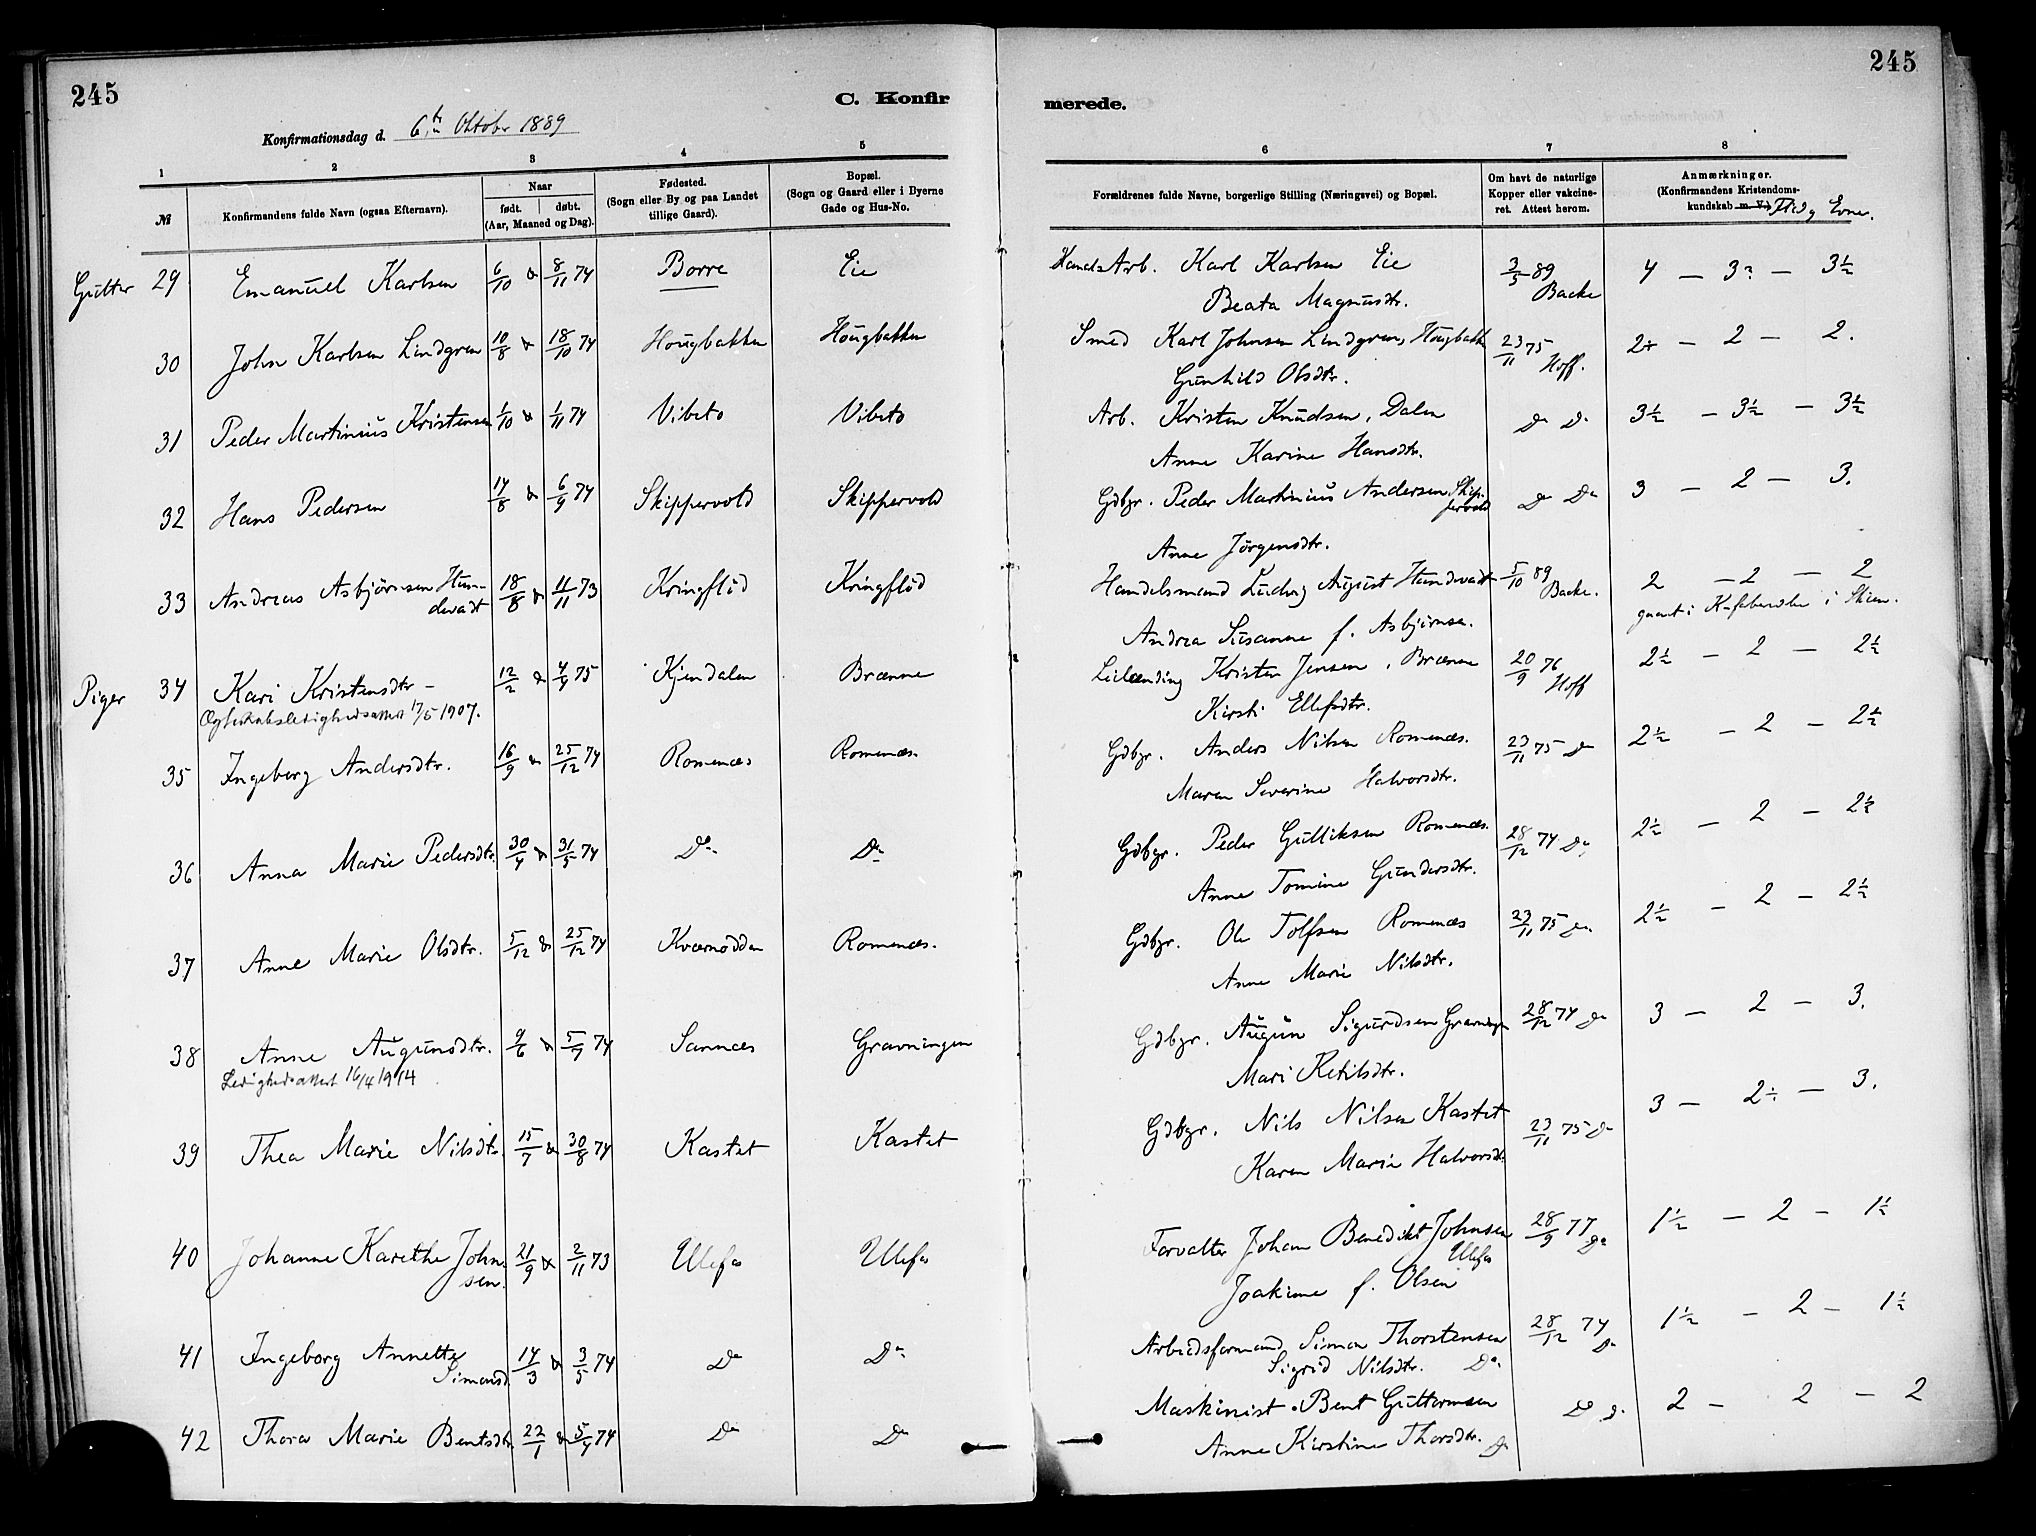 245
C. Konfir
Konfirmationsdag d. 6te Oktober 1889
1 2 3 4 5
№
Konfirmandens fulde Navn (ogsaa Efternavn).
Naar
født. døbt.
(Aar, Maaned og Dag).
Fødested.
(Sogn eller By og paa Landet
tillige Gaard).
Bopæl.
(Sogn og Gaard eller i Byerne
Gade og Hus-No.
Gutter 29 Emanuel Karlsen 6/10 & 8/11 74 Borre Eie
30 John Karlsen Lindgren 10/8 & 18/10 74 Hougbakken Hougbakken
31 Peder Martinius Kristensen 1/10 & 1/11 74 Vibeto Vibeto
32 Hans Pedersen 14/8 & 6/9 74 Skippervold Skippervold
33 Andreas Asbjørnsen Hun-
devadt 18/8 & 11/11 73 Kringflud Kringflud
Piger 34 Kari Kristensdtr – 12/2 & 4/4 75 Kjendalen Brænne
Ægteskabsledighedsattest 17/5 1907.
35 Ingeborg Andersdtr. 16/9 & 25/12 74 Romenæs Romenæs.
36 Anna Marie Pedersdtr. 30/4 & 31/5 74 Do Do
37 Anne Marie Olsdtr. 5/12 & 25/12 74 Kværnodden Romenæs.
38 Anne Augunsdtr. 9/6 & 5/7 74 Sannæs Gravningen
Ledighedsattest 16/4 1914
39 Thea Marie Nilsdtr. 15/7 & 30/8 74 Kastet Kastet
40 Johanne Karethe John-
sen. 21/9 & 2/11 73 Ulefos Ulefos
41 Ingeborg Annette
Simonsd. 14/3 & 3/5 74 Do Do
42 Thora Marie Bentsdtr 22/1 & 5/4 74 Do Do
245
merede.
6 7 8
Forældrenes fulde Navne, borgerlige Stilling (Næringsvei) og Bopæl.
Om havt de naturlige
Kopper eller vakcine-
ret. Attest herom.
Anmærkninger.
(Konfirmandens Kristendoms-
kundskab m. V.) Flid, Evne.
Karl Karlsen Eie 3/5 89 Backe 4 – 3 – 3½
Beata Magnusdtr.
Smed Karl Johnsen Lindgren, Hougbakk 23/11 75 Hoff. 2÷ – 2 – 2.
Gunhild Olsdtr.
Arb. Kristen Knudsen, Dalen Do Do 3½ – 3½ – 3½
Anne Karine Hansdtr.
Gdbgr. Peder Martinius Andersen Skip-
pervold Do Do 3 – 2 – 3.
Anne Jörgensdtr.
Handelsmand Ludvig August Hundevadt 5/10 89 Backe. 2 – 2 – 2
Andrea Susanne f. Asbjørnsen. i Skien.
Leilænding Kristen Jensen, Brænne 20/9 76 Hoff 2½ – 2 – 2½
Kirsti Ellefsdtr.
Gdbgr. Anders Nilsen Romenæs. 23/11 75 Do 2½ – 2 – 2½
Maren Severine Halvorsdtr.
Gdbgr. Peder Gulliksen Romenæs. 28/12 74 Do 2½ – 2 – 2½
Anne Tomine Gundersdtr.
Gdbgr. Ole Tolfsen Romenæs 23/11 75 Do 2½ – 2 – 2½
Anne Marie Nilsdtr.
Gdbgr. Augun Sigurdsen Gravningen 28/12 74 Do 3 – 2 – 3.
Mari Ketilsdtr.
Gdbgr. Nils Nilsen Kastet 23/11 75 Do 3 – 2÷ – 3.
Karen Marie Halvorsdt.
Forvalter Johan Benedikt Johnsen
Ulefos 28/9 77 Do 1½ – 2 – 1½
Joakime f. Olsen
Arbeidsformand Simon Thorstensen 28/12 74 Do 1½ – 2 – 1½
Sigrid Nilsdtr. Do
Maskinist Bent Guttormsen Do Do 2 – 2 – 2
Anne Kirstine Thorsdtr. Do